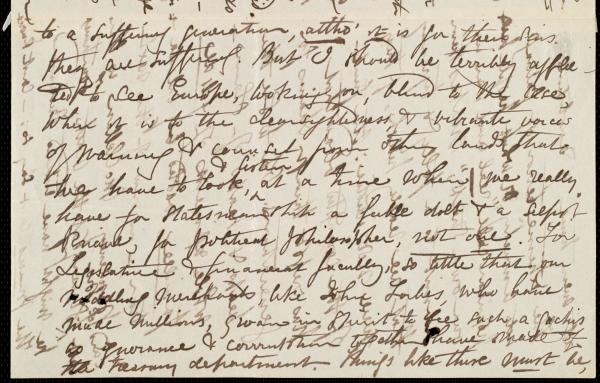 to a suffering generation, altho' it is for their sins
they are suffering. But I should be terribly afflic
ted to see Europe, looking on, blind to the case
when it is to the clearsightedness & vibrant voices
of warning & counsel from other lands that
they have to look, & listen, at a time when we really
have for statesmanship a feeble dolt & a
knave, for political philosopher, not one. For
Legislative & financial faculty, so little that our
meddling merchants, like John Forbes, who have
made millions, in spirit to see such a
ignorance & corruption together have made of
the Treasury department. Things like these must be,